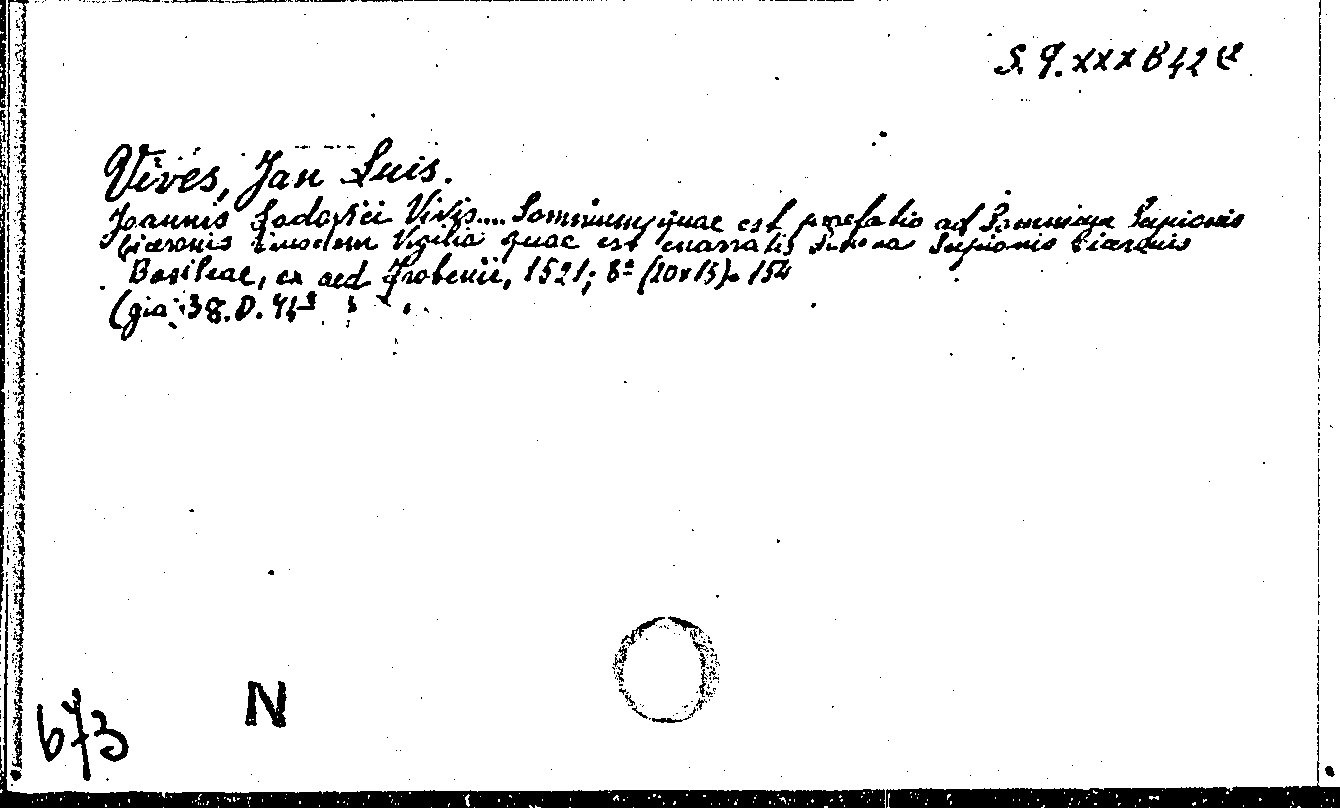 S. Q. XXX B 42
Vives, Jan Luis.
Joannis Lodovici Vivis.... Somnium, quae est praefatio ad Somnium Scipionis
Ciceronis Eiusdem Vigilia quae est enarratio Scipionis Ciceronis
Basileae, ex aed Frobenii, 1521; 8º (20x15)p. 154
(già 38. D.
N
673